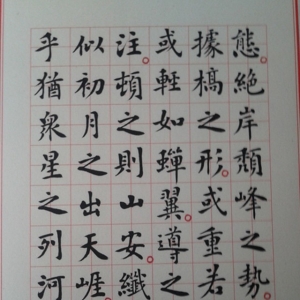 態絕岸頹峰之勢
據槁之形或重若
或輕如蟬翼導之
注頓之則山安纖
似初月之出天崖
乎猶衆星之列河